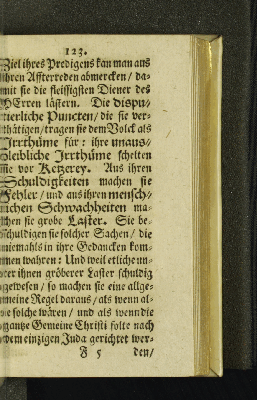 123.
Ziel ihres Predigens kan man aus
ihren Affterreden abmercken / da-
mit sie die fleissigsten Diener des
HErren lästern. Die dispu-
tierliche Puncten / die sie ver-
thätigen / tragen sie dem Volck als
Irrthüme für: ihre unaus-
bleibliche Irrthüme schelten
sie vor Ketzerey. Aus ihren
Schuldigkeiten machen sie
Fehler / und aus ihren mensch-
lichen Schwachheiten ma-
chen sie grobe Laster. Sie be-
schuldigen sie solcher Sachen / die
niemahls in ihre Gedancken kom-
men wahren: Und weil etliche un-
ter ihnen gröberer Laster schuldig
gewesen / so machen sie eine allge-
meine Regel daraus / als wenn al-
le solche wären / und als wenn die
gantze Gemeine Christi solte nach
dem einzigen Juda gerichtet wer-
F 5 den /